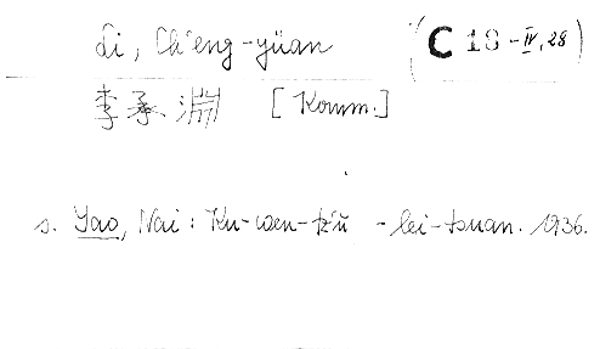 Li, Ch'eng-yüan (C 18 - IV, 28)
李承淵 [Komm.]
s. Yao, Nai: Ku-wen-tz'ŭ -lei-tsuan. 1936.